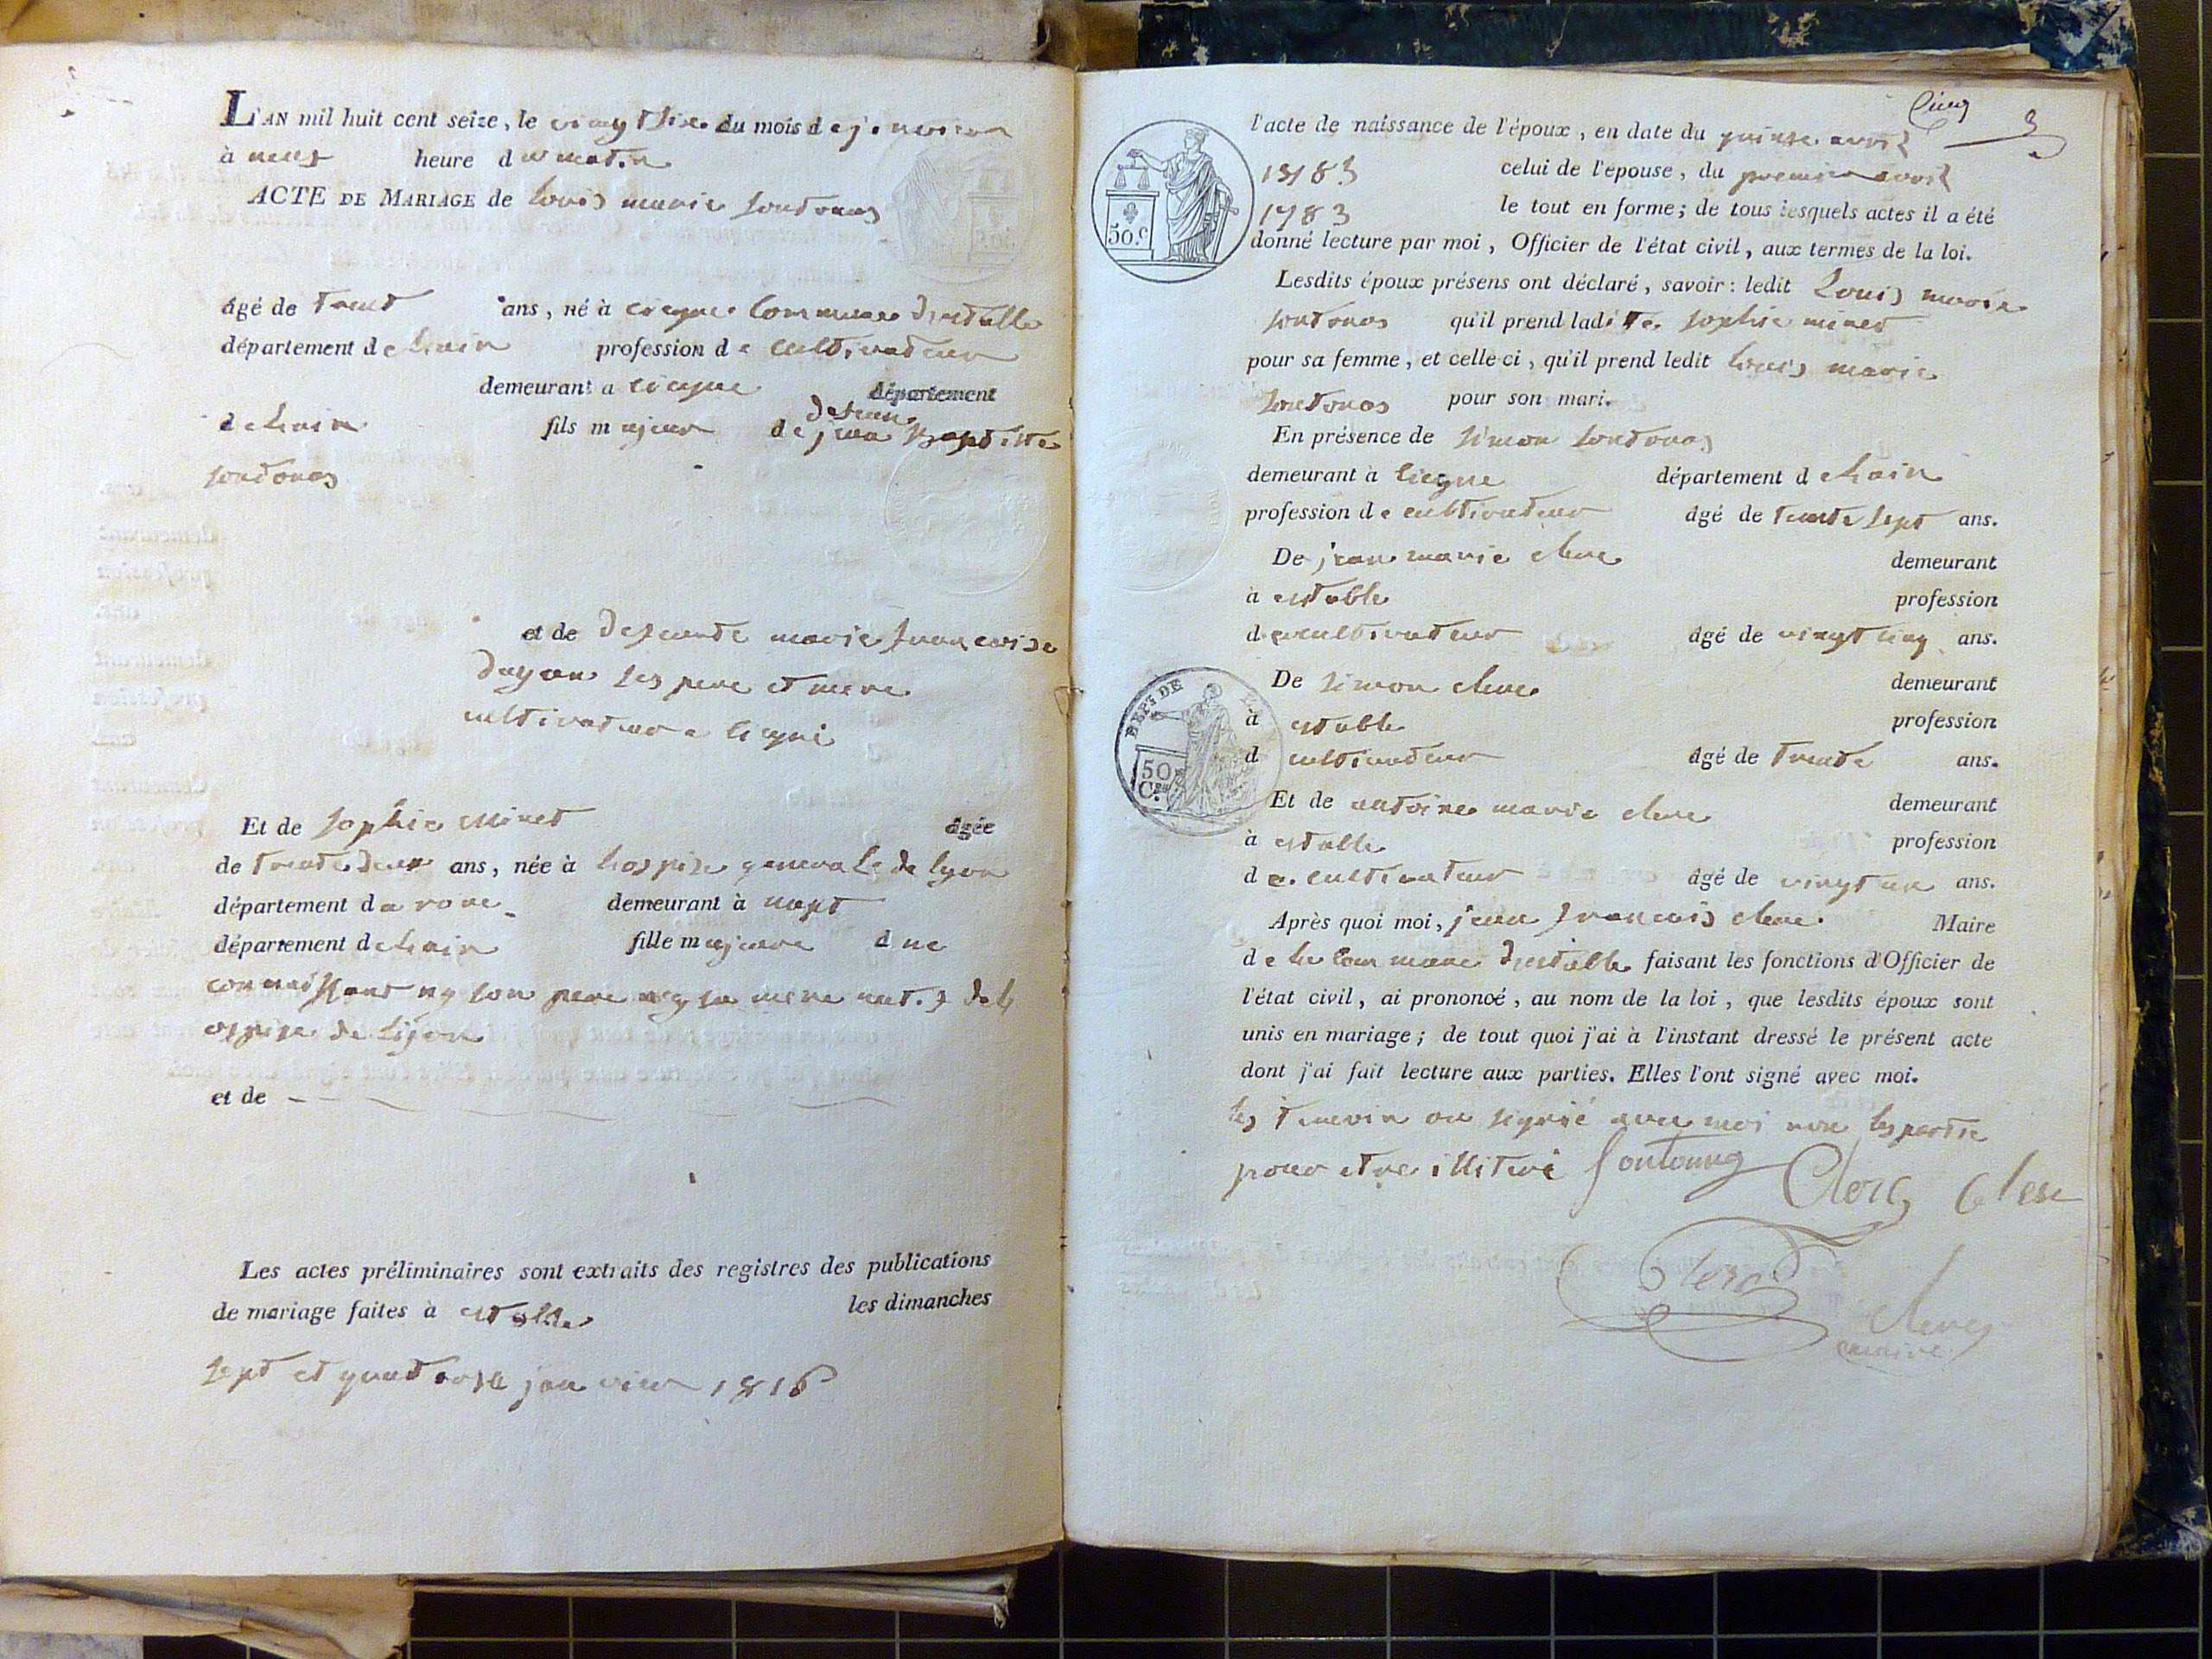 L'AN mil huit cent seize, le vingt six du mois de janvier
à neuf heure du matin
ACTE DE MARIAGE de Louis marie
âgé de trent ans, né à commune destable
département de lain profession de cultivateur
demeurant a département
de lain fils majeur de jean Baptiste
et de defeunte marie francoise
les pere et mere
cultivateur a
Et de Sophie Minet âgée
de trente deux ans, née à hospise generale de lyon
département du rone demeurant à
département de lain fille majeure d ne
connaissant ny son pere ny sa mere de l
ospise de Liyon
et de
Les actes préliminaires sont extraits des registres des publications
de mariage faites à estable les dimanches
sept et quatorse janvier 1816
Cinq
3
l'acte de naissance de l'époux, en date du quinse avril
1783 celui de l'epouse, du premier avril
1783 le tout en forme; de tous lesquels actes il a été
50.c donné lecture par moi, Officier de l'état civil, aux termes de la loi.
Lesdits époux présens ont déclaré, savoir: ledit Louis marie
qu'il prend ladite sophie minet
pour sa femme, et celle-ci, qu'il prend ledit louis marie
pour son mari.
En présence de simon
demeurant à département de lain
profession de cultivateur âgé de trente sept ans.
De jean marie clerc demeurant
à estable profession
de cultivateur âgé de vingt cinq ans.
De simon clerc demeurant
à estable profession
d cultivateur âgé de trente ans.
DEPT DE
50 Ces
Et de antoine marie clerc demeurant
à estable profession
de cultivateur âgé de vingt un ans.
Après quoi moi, jean francois clerc Maire
de la commune destable faisant les fonctions d'Officier de
l'état civil, ai prononcé, au nom de la loi, que lesdits époux sont
unis en mariage; de tout quoi j'ai à l'instant dressé le présent acte
dont j'ai fait lecture aux parties. Elles l'ont signé avec moi.
les temoin on signié avec moi non les partie
pour etre illiteré Clerc Clerc
Clerc Clerc
maire